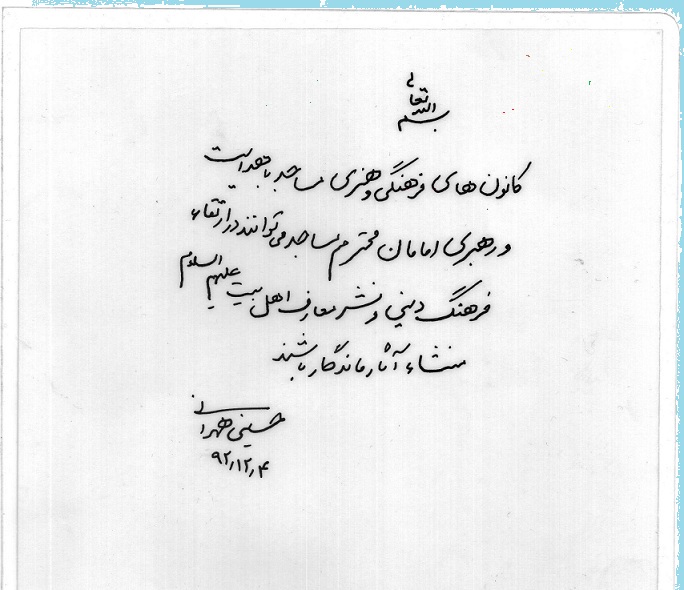 بسم الله تعالی
کانون های فرهنگی و هنری مساجد با هدایت
و رهبری امامان محترم مساجد می توانند در ارتقاء
فرهنگ دینی و نشر معارف اهل بیت علیهم السلام
منشاء آثار ماندگار باشند
حسینی
۹۲٫۱۲٫۴